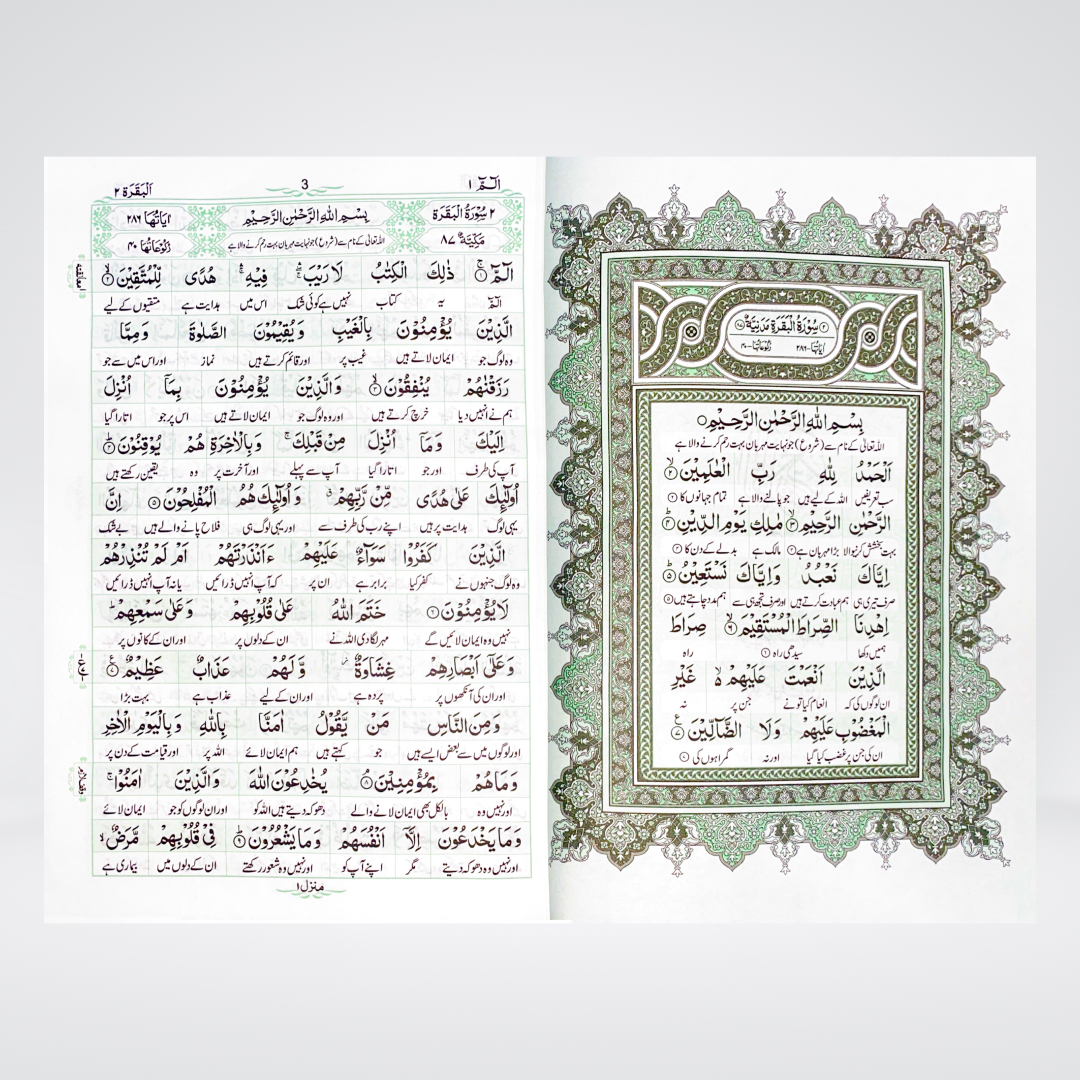 ٢ سُوْرَةُ الْبَقَرَةِ مَدَنِيَّةٌ ٨٧
اٰيَاتُهَا-٢٨٦ رُكُوْعَاتُهَا-٤٠
بِسْمِ اللّٰهِ الرَّحْمٰنِ الرَّحِيْمِ
اللہ تعالیٰ کے نام سے (شروع) جو نہایت مہربان بہت رحم کرنے والا ہے
اَلْحَمْدُ لِلّٰهِ رَبِّ الْعٰلَمِيْنَ ٢
سب تعریفیں اللہ کے لیے ہیں جو پالنے والا ہے تمام جہانوں کا ٢
الرَّحْمٰنِ الرَّحِيْمِ ٣ مٰلِكِ يَوْمِ الدِّيْنِ ٤
بہت بخشش کرنیوالا بڑا مہربان ہے ٣ مالک ہے بدلے کے دن کا ٤
اِيَّاكَ نَعْبُدُ وَاِيَّاكَ نَسْتَعِيْنُ ٥
صرف تیری ہی ہم عبادت کرتے ہیں اور صرف تجھ ہی سے ہم مدد چاہتے ہیں ٥
اِهْدِنَا الصِّرَاطَ الْمُسْتَقِيْمَ ٦ صِرَاطَ
ہمیں دکھا سیدھی راہ ٦ راہ
الَّذِيْنَ اَنْعَمْتَ عَلَيْهِمْ ۙ غَيْرِ
ان لوگوں کی کہ انعام کیا تو نے جن پر نہ
الْمَغْضُوْبِ عَلَيْهِمْ وَلَا الضَّآلِّيْنَ ٧
ان کی جن پر غضب کیا گیا اور نہ گمراہوں کی ٧
الٓمّٓ ١ 3 اَلْبَقَرَة ٢
٢ سُوْرَةُ الْبَقَرَةِ بِسْمِ اللّٰهِ الرَّحْمٰنِ الرَّحِيْمِ اٰيَاتُهَا ٢٨٦
٨٧ اللہ تعالیٰ کے نام سے (شروع) جو نہایت مہربان بہت رحم کرنے والا ہے رُكُوْعَاتُهَا ٤٠
الٓمّٓ ١ ذٰلِكَ الْكِتٰبُ لَا رَيْبَ فِيْهِ هُدًى لِّلْمُتَّقِيْنَ ٢
الٓمّٓ یہ کتاب نہیں ہے کوئی شک اس میں ہدایت ہے متقیوں کے لیے
الَّذِيْنَ يُؤْمِنُوْنَ بِالْغَيْبِ وَيُقِيْمُوْنَ الصَّلٰوةَ وَمِمَّا
وہ لوگ جو ایمان لاتے ہیں غیب پر اور قائم کرتے ہیں نماز اور اس میں سے جو
رَزَقْنٰهُمْ يُنْفِقُوْنَ ٣ وَالَّذِيْنَ يُؤْمِنُوْنَ بِمَآ اُنْزِلَ
ہم نے انہیں دیا خرچ کرتے ہیں اور وہ لوگ جو ایمان لاتے ہیں اس پر جو اتارا گیا
اِلَيْكَ وَمَآ اُنْزِلَ مِنْ قَبْلِكَ وَبِالْاٰخِرَةِ هُمْ يُوْقِنُوْنَ ٤
آپ کی طرف اور جو اتارا گیا آپ سے پہلے اور آخرت پر وہ یقین رکھتے ہیں
اُولٰٓئِكَ عَلٰى هُدًى مِّنْ رَّبِّهِمْ وَاُولٰٓئِكَ هُمُ الْمُفْلِحُوْنَ ٥ اِنَّ
یہی لوگ ہدایت پر ہیں اپنے رب کی طرف سے اور یہی لوگ ہی فلاح پانے والے ہیں بے شک
الَّذِيْنَ كَفَرُوْا سَوَآءٌ عَلَيْهِمْ ءَاَنْذَرْتَهُمْ اَمْ لَمْ تُنْذِرْهُمْ
وہ لوگ جنہوں نے کفر کیا برابر ہے ان پر کہ آپ انہیں ڈرائیں یا نہ آپ انہیں ڈرائیں
لَا يُؤْمِنُوْنَ ٦ خَتَمَ اللّٰهُ عَلٰى قُلُوْبِهِمْ وَعَلٰى سَمْعِهِمْ
نہیں وہ ایمان لائیں گے مہر لگا دی اللہ نے ان کے دلوں پر اور ان کے کانوں پر
وَعَلٰٓى اَبْصَارِهِمْ غِشَاوَةٌ وَّلَهُمْ عَذَابٌ عَظِيْمٌ ٧
اور ان کی آنکھوں پر پردہ ہے اور ان کے لیے عذاب ہے بہت بڑا
وَمِنَ النَّاسِ مَنْ يَّقُوْلُ اٰمَنَّا بِاللّٰهِ وَبِالْيَوْمِ الْاٰخِرِ
اور لوگوں میں سے بعض ایسے ہیں جو کہتے ہیں ہم ایمان لائے اللہ پر اور قیامت کے دن پر
وَمَا هُمْ بِمُؤْمِنِيْنَ ٨ يُخٰدِعُوْنَ اللّٰهَ وَالَّذِيْنَ اٰمَنُوْا
اور نہیں وہ بالکل بھی ایمان لانے والے دھوکہ دیتے ہیں اللہ کو اور ان لوگوں کو جو ایمان لائے
وَمَا يَخْدَعُوْنَ اِلَّآ اَنْفُسَهُمْ وَمَا يَشْعُرُوْنَ ٩ فِيْ قُلُوْبِهِمْ مَّرَضٌ
اور نہیں وہ دھوکہ دیتے مگر اپنے آپ کو اور نہیں وہ شعور رکھتے ان کے دلوں میں بیماری ہے
منزل ١